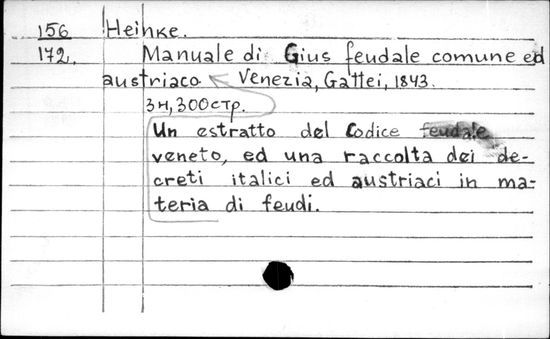 156 Heinke.
172. Manuale di Gius feudale comune ed
austriaco Venezia, Gattei, 1843.
3н, 300стр.
Un estratto del Codice feudale
veneto, ed una raccolta dei de-
creti italici ed austriaci in ma-
teria di feudi.